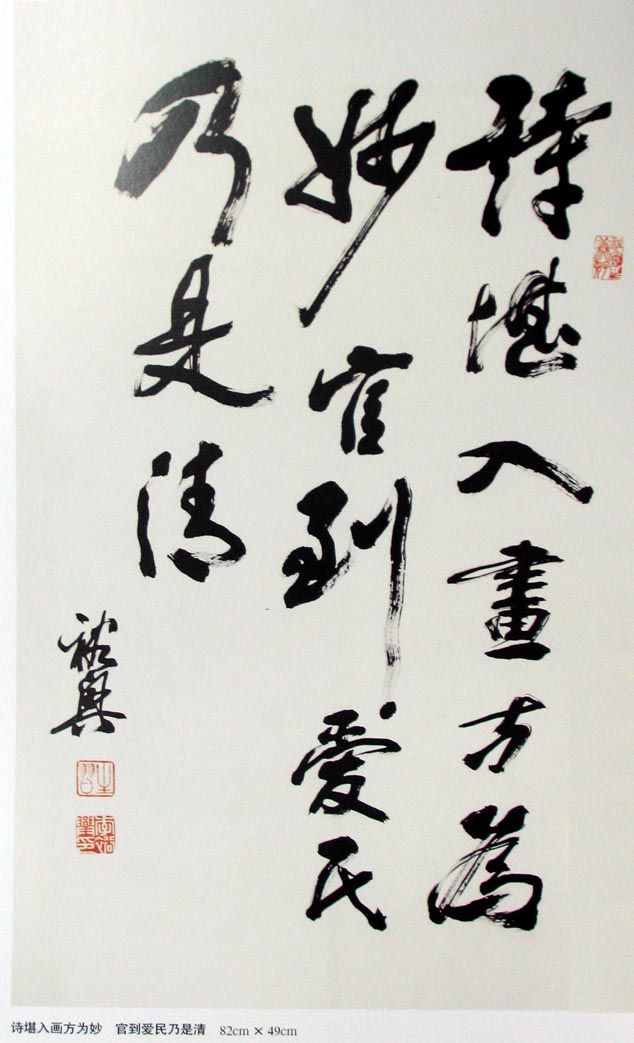 詩堪入畫方為
妙官到愛民
乃是清
诗堪入画方为妙 官到爱民乃是清 82cm × 49cm